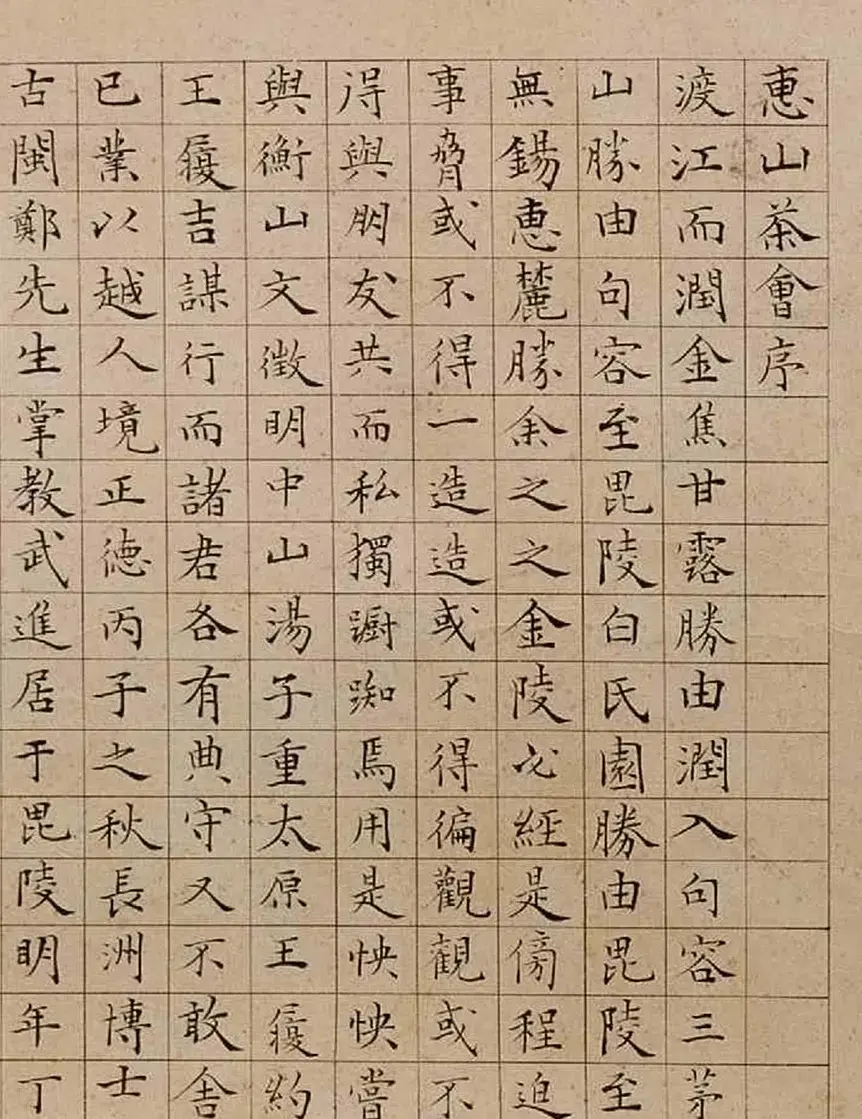 惠山茶會序
渡江而潤金焦甘露勝由潤入句容三茅
山勝由句容至毘陵白氏園勝由毘陵至
無錫惠麓勝余之之金陵必經是傍程迫
事脅或不得一造造或不得徧觀觀或不
得與朋友共而私獨蹰踟焉用是怏怏嘗
與衡山文徴明中山湯子重太原王履約
王履吉謀行而諸君各有典守又不敢舍
已業以越人境正德丙子之秋長洲博士
古閩鄭先生掌教武進居于毘陵明年丁